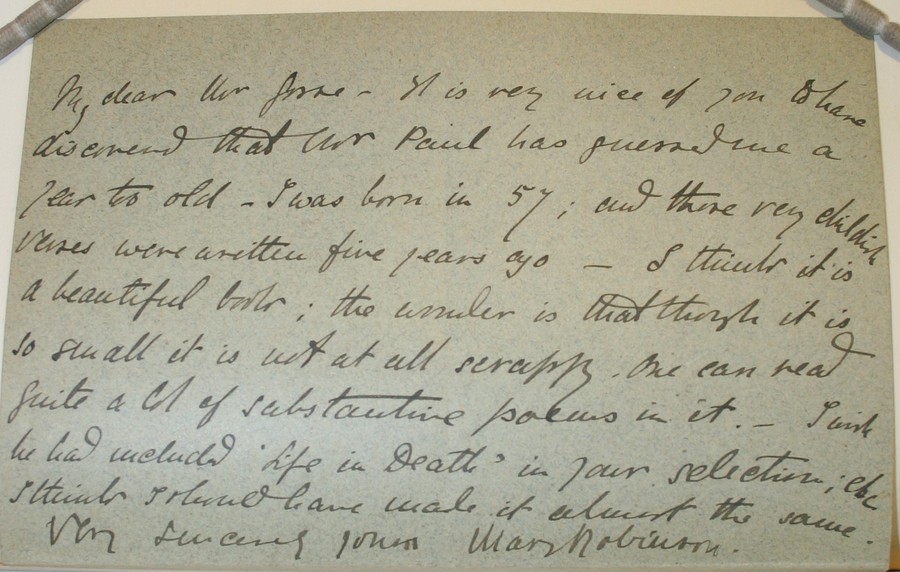 My dear Mr Gosse - It is very nice of you to have
discovered that Mr Paul has guessed me a
year too old - I was born in 57; and those very childish
verses were written five years ago - I think it is
a beautiful book; the wonder is that though it is
so small it is not at all scrappy. One can read
quite a lot of substantive poems in it. - I wish
he had included 'Life in Death' in your selection; else
I think I should have made it almost the same.
Very sincerely yours Mary Robinson.